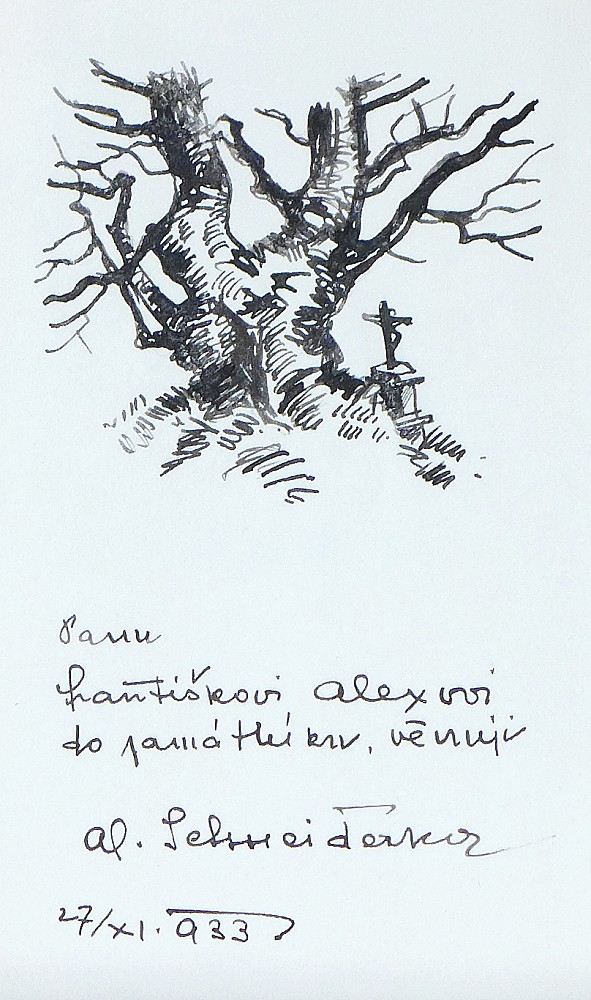 Panu
Františkovi Alexovi
do památníku, věnuji
Al. Schneiderka
27/XI. 933